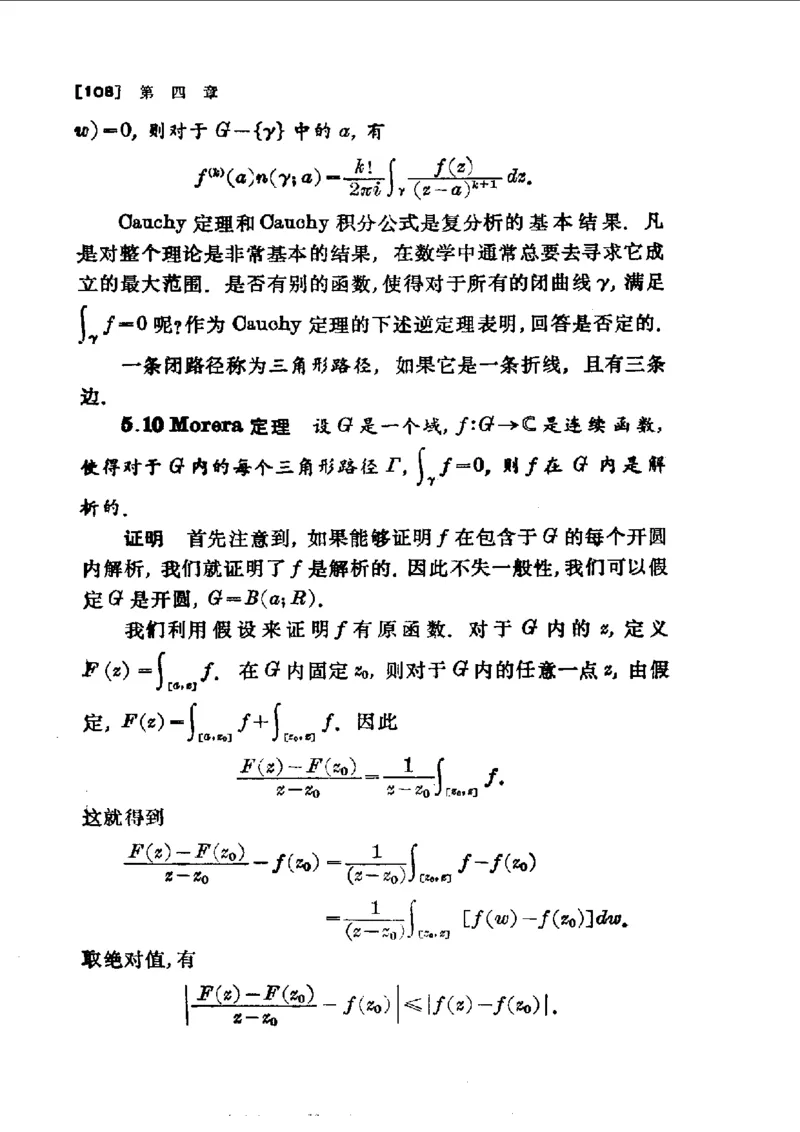 [108] 第四章
w)=0, 则对于 G−{γ} 中的 a, 有
f⁽ᵏ⁾(a)n(γ; a)=k!/2πi ∫_γ f(z)/(z−a)^{k+1} dz.
Cauchy 定理和 Cauchy 积分公式是复分析的基本结果. 凡
是对整个理论是非常基本的结果, 在数学中通常总要去寻求它成
立的最大范围. 是否有别的函数, 使得对于所有的闭曲线 γ, 满足
∫_γ f=0 呢? 作为 Cauchy 定理的下述逆定理表明, 回答是否定的.
一条闭路径称为三角形路径, 如果它是一条折线, 且有三条
边.
5.10 Morera 定理 设 G 是一个域, f:G→ℂ 是连续函数,
使得对于 G 内的每个三角形路径 Γ, ∫_γ f=0, 则 f 在 G 内是解
析的.
证明 首先注意到, 如果能够证明 f 在包含于 G 的每个开圆
内解析, 我们就证明了 f 是解析的. 因此不失一般性, 我们可以假
定 G 是开圆, G=B(a; R).
我们利用假设来证明 f 有原函数. 对于 G 内的 z, 定义
F(z)=∫_{[a,z]} f. 在 G 内固定 z₀, 则对于 G 内的任意一点 z, 由假
定, F(z)=∫_{[a,z₀]} f+∫_{[z₀,z]} f. 因此
(F(z)−F(z₀))/(z−z₀)=1/(z−z₀) ∫_{[z₀,z]} f.
这就得到
(F(z)−F(z₀))/(z−z₀)−f(z₀)=1/(z−z₀) ∫_{[z₀,z]} f−f(z₀)
=1/(z−z₀) ∫_{[z₀,z]} [f(w)−f(z₀)]dw.
取绝对值, 有
|(F(z)−F(z₀))/(z−z₀)−f(z₀)|≤|f(z)−f(z₀)|.